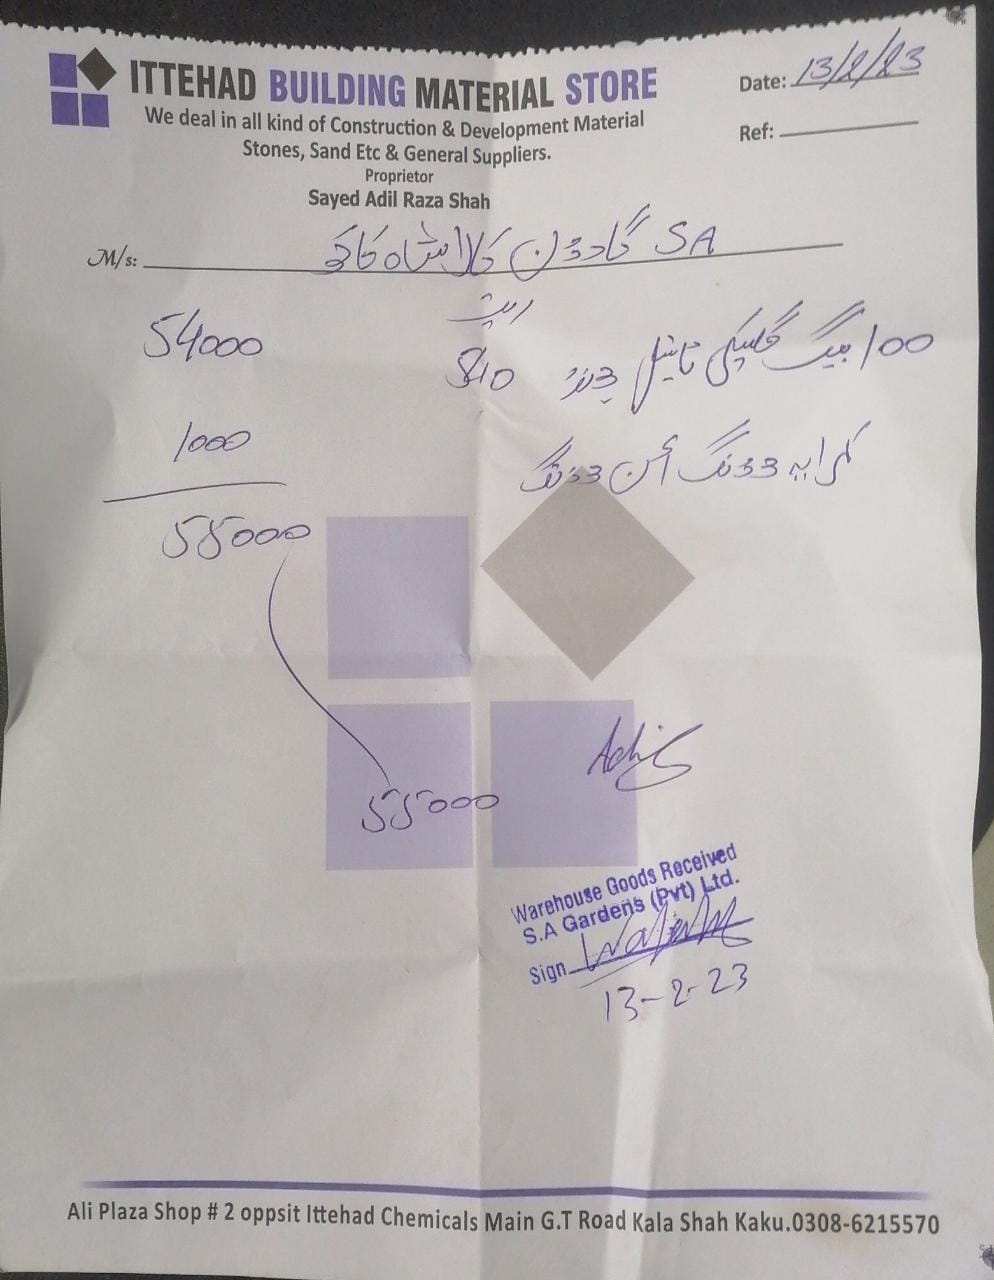 ITTEHAD BUILDING MATERIAL STORE
We deal in all kind of Construction & Development Material
Stones, Sand Etc & General Suppliers.
Proprietor
Sayed Adil Raza Shah
Date: 13/2/23
Ref:
M/s: SA گارڈن کالا شاہ کاکو
ریٹ
100 بیگ ٹائل بونڈ 540 54000
کرایہ لوڈنگ ان لوڈنگ 1000
55000
55000
Warehouse Goods Received
S.A Gardens (Pvt) Ltd.
Sign
13-2-23
Ali Plaza Shop # 2 oppsit Ittehad Chemicals Main G.T Road Kala Shah Kaku.0308-6215570